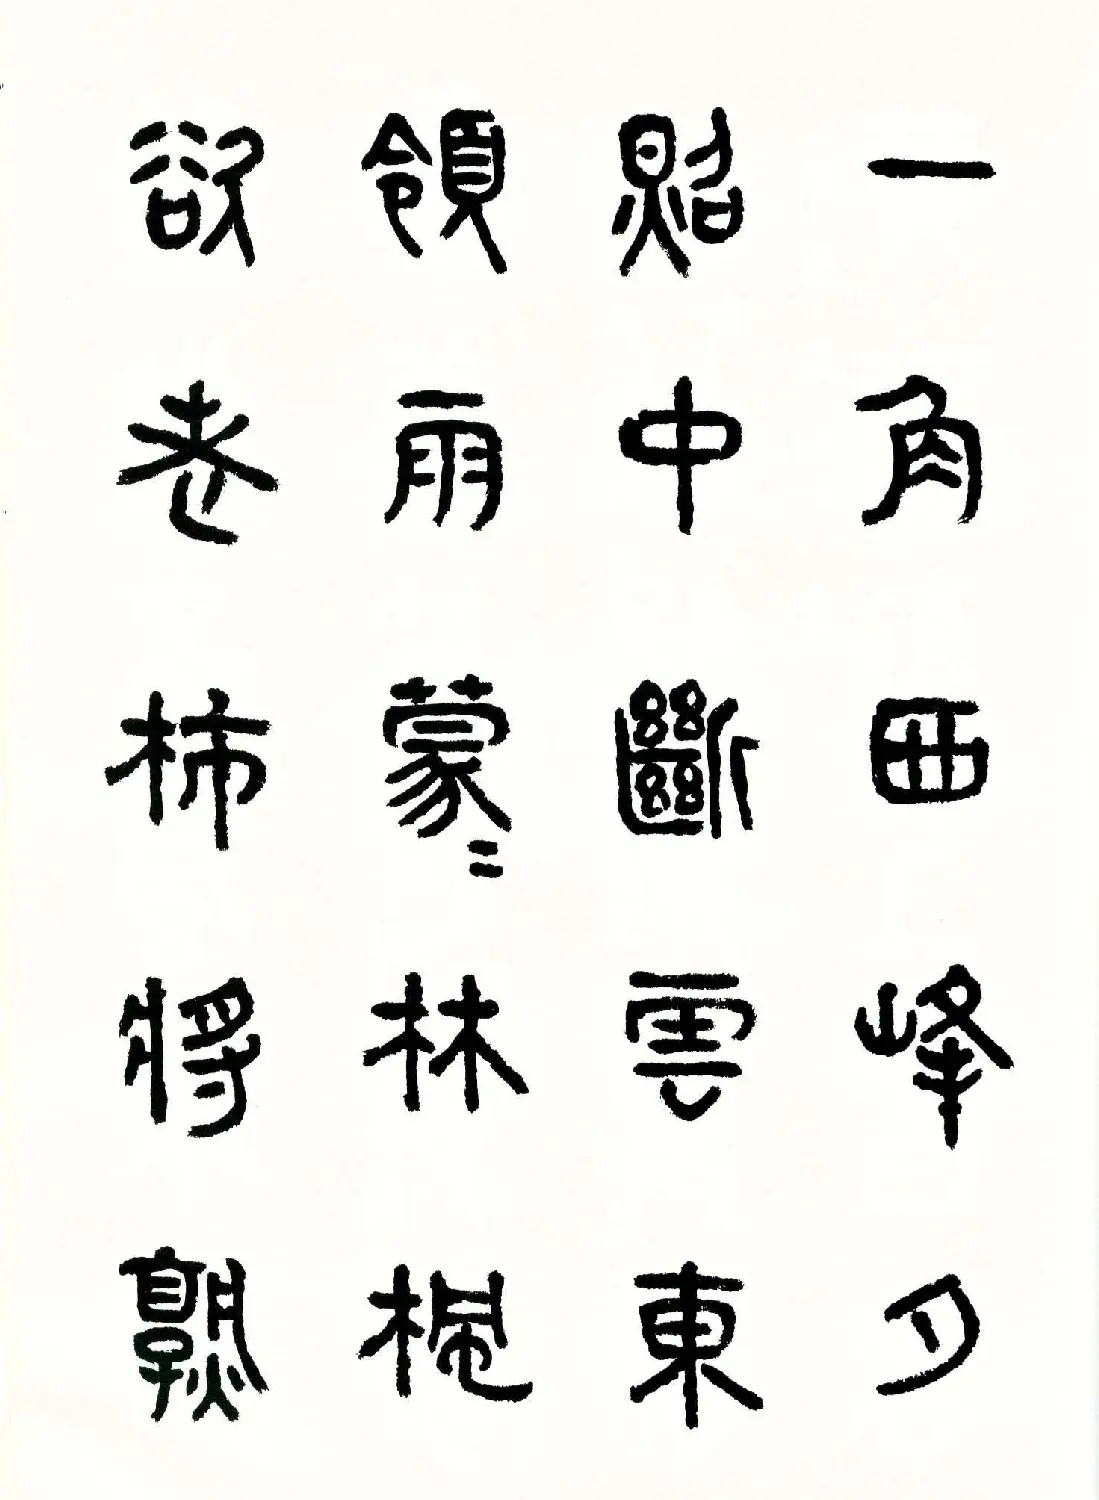 一角西峰夕
照中斷雲東
領雨蒙〻林楓
欲老柿將熟